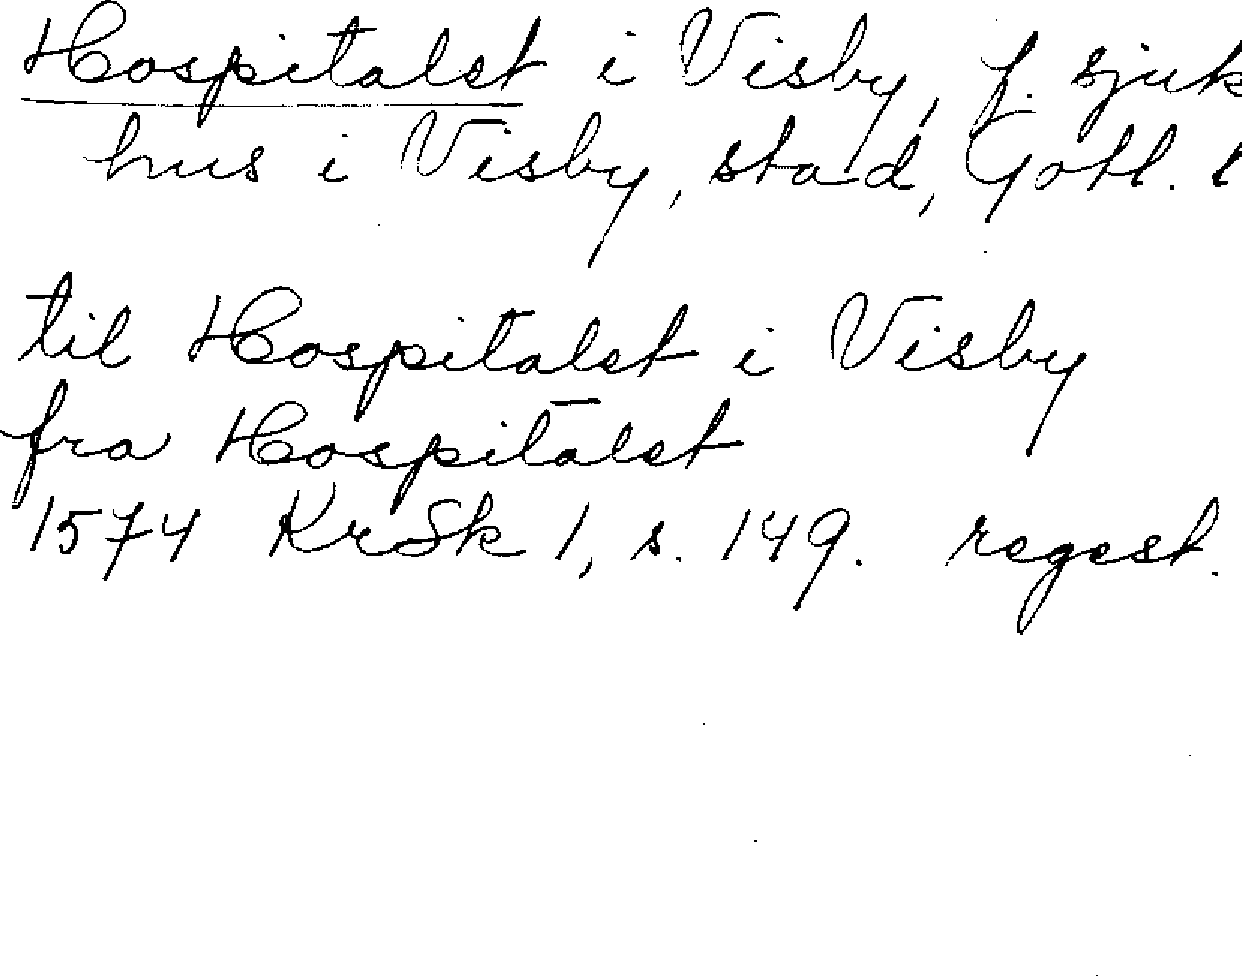 Hospitalet i Visby, f. sjuk
hus i Visby, stad, Gotl. l
til Hospitalet i Visby
fra Hospitalet
1574 KrSk 1, s. 149. regest.